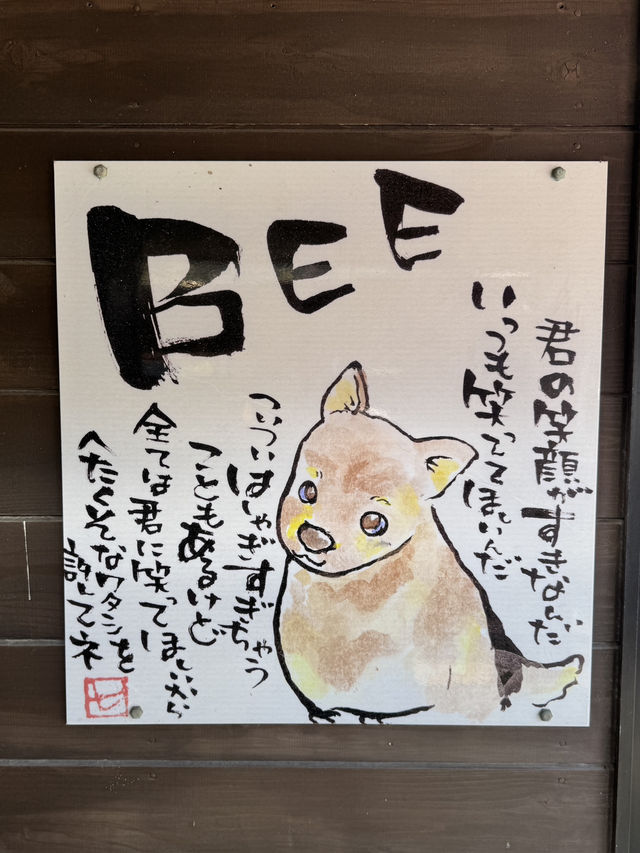 BEE
君の笑顔がすきなんだ
いつも笑っててほしいんだ
ついついはしゃぎすぎちゃう
こともあるけど
全ては君に笑ってほしいから
へたくそなワタシを
許してネ